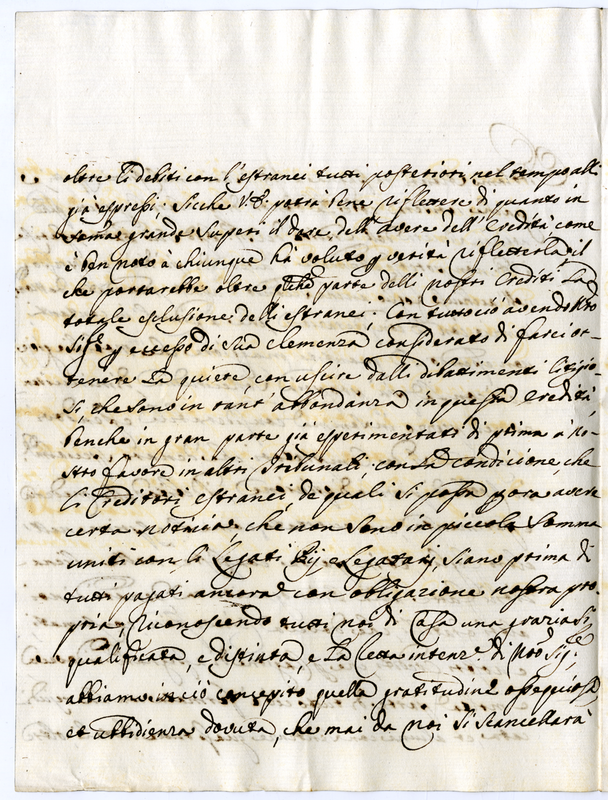 oltre li debiti con l'estranei tutti posteriori nel tempo alli
già espressi. Sicche V.S. potrà bene riflettere di quanto in
soma grande superi il dare dell'avere dell'Eredità come
è ben noto à chiunque hà voluto p verità rifletterla, il
che portarebbe oltre parte delli nostri Crediti La
totale esclusione delli estranei. Con tuttociò avendo Nro
Sigre p eccesso di sua clemenza considerato di farci ot-
tenere La quiete con uscire dalli dibattimenti litigio-
si, che sono in tant'abbondanza in questa Eredità
benche in gran parte già esperimentati di prima à no-
stro favore in altri Tribunali, con La condicione, che
li Creditori estranei, de quali si possa pora avere
certa notitia, che non sono in piccola somma
uniti con li Legati Pij e Legatarj siano prima di
tutti pagati ancora con obligazione nostra pro-
pria, riconoscendo tutti noi di Casa una grazia si
qualificata, e distinta, e La retta intenze di Nro Sigre,
abbiamo in ciò concepito quella gratitudine ossequiosa
et ubbidienza dovuta, che mai da noi si scancellarà